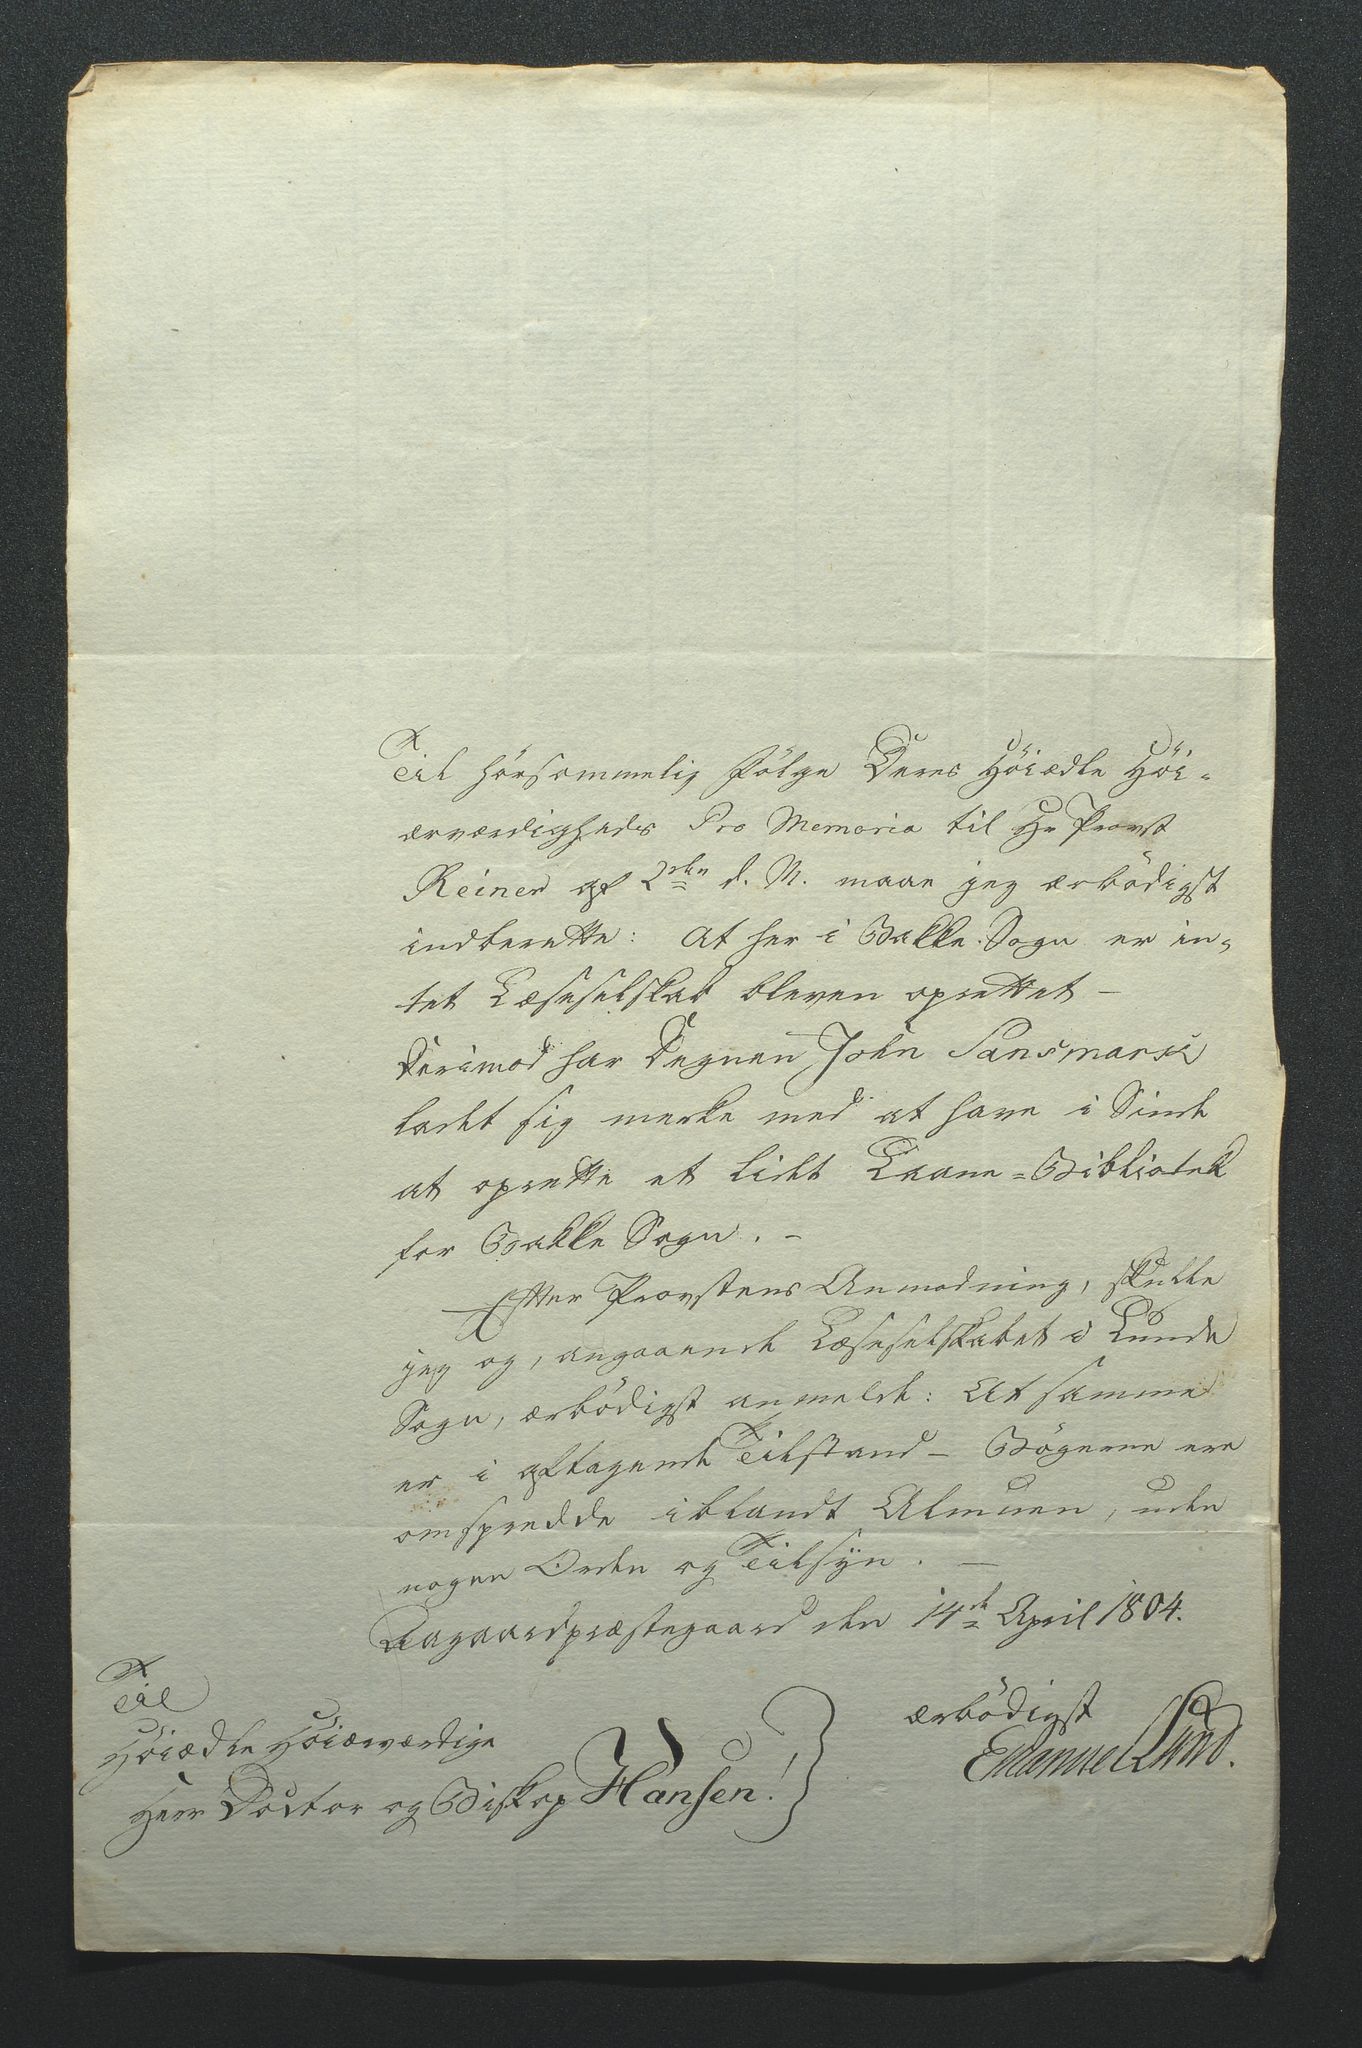 Til hörsommelig Fölge Deres Höiædle Höi-
ærværdigheds Pro Memoria til Hr Provst
Reiner af 2den d. M. maae jeg ærbödigst
indberette: At her i Bakke Sogn er in-
tet Læseselskab bleven oprettet -
Derimod har Degnen John
ladet sig merke med at have i Sinde
at oprette et lidet Laane-Bibliotek
for Bakke Sogn. -
Efter Provstens Anmodning, skulle
jeg og, angaaende Læseselskabet i Lunde
Sogn, ærbödigst anmelde: At samme
er i aftagende Tilstand - Bögerne ere
omspredde iblandt Almuen, uden
nogen Orden og Tilsÿn. -
Aagaardpræstegaard den 14de April 1804.
ærbödigst
Emanuel Lund.
Til
Höiædle Höiærværdige
Herr Doctor og Biskop Hansen!